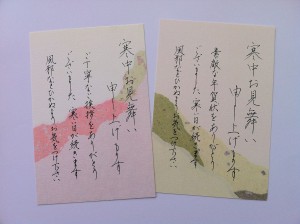 寒中お見舞い
申し上げます
ご丁寧な御挨拶をありがとう
ございました 寒い日が続きます
風邪などひかぬようお気をつけ下さい
寒中お見舞い
申し上げます
素敵な年賀状をありがとう
ございました 寒い日が続きます
風邪などひかぬようお気をつけ下さい